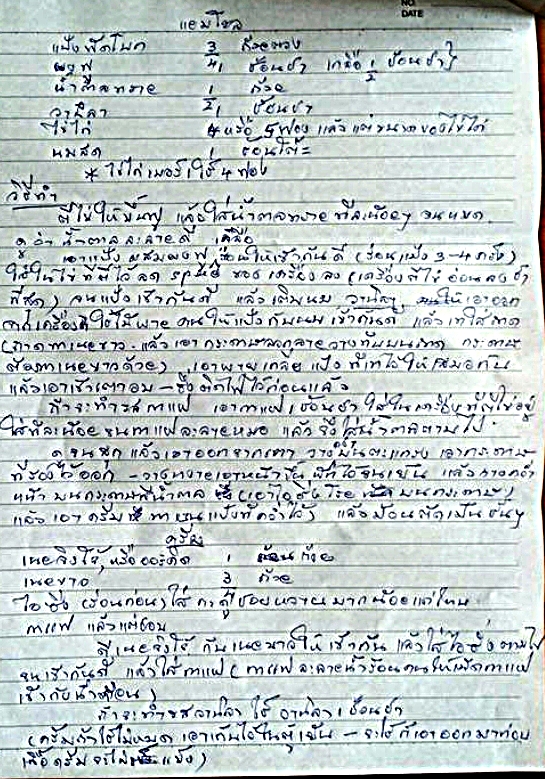 NO.
DATE
แยมโรล
แป้งพัดโบก 3/4 ถ้วยตวง
ผงฟู 1 ช้อนชา เกลือ 1/2 ช้อนชา
น้ำตาลทราย 1/2 ถ้วย
วานิลา 1 ช้อนชา
ไข่ไก่ 4 หรือ 5 ฟอง แล้วแต่ขนาดของไข่ไก่
นมสด 1 ช้อนโต๊ะ
* ไข่ไก่เบอร์ 1 ใช้ 4 ฟอง
วิธีทำ
ตีไข่ให้ขึ้นฟู แล้วใส่น้ำตาลทราย ทีละน้อยๆ จนหมด
ดูว่าน้ำตาลละลายดี เกลือ
เอาแป้ง ผสมผงฟู ร่อนให้เข้ากันดี (ร่อนแป้ง 3-4 ครั้ง)
ใส่ในไข่ที่ตีไว้ ลด speed ของเครื่องลง (เครื่องตีไข่ อ่อนลงช้า
ที่สุด) จนแป้งเข้ากันดี แล้วเติมนม วานิลา คนให้เอาออก
จากเครื่อง ใช้ไม้พาย คนให้แป้งกับนม เข้ากันดี แล้วเทใส่ถาด
(ถาดทาเนยขาว แล้วเอากระดาษลงปูลาดวางทับบนถาด กระดาษ
ต้องทาเนยขาวด้วย) เอาพายเกลี่ย แป้งที่เทไว้ให้เสมอกัน
แล้วเอาเข้าเตาอบ - ซึ่งติดไฟไว้ก่อนแล้ว
ถ้าจะทำรสกาแฟ เอากาแฟ 1 ช้อนชา ใส่ในเครื่องที่ตีไข่อยู่
ใส่ทีละน้อยจนกาแฟละลายหมด แล้วจึงใส่น้ำตาลตามไป
ดูจนสุก แล้วเอาออกจากเตา วางบนตะแกรง เอากระดาษ
ที่รองไว้ออก - วางหงายเอาหน้าขึ้น ทิ้งไว้จนเย็น แล้วกางคว่ำ
หน้า บนกระดาษที่น้ำตาล (เอาไอซิ่งโรย บนกระดาษ)
แล้วเอาครีม ทาบนแป้งที่คว่ำไว้) แล้วม้วนตัดเป็นชิ้นๆ
ครีม
เนยจืดใช้, หรือออร์คิด 1 ก้อน ถ้วย
เนยขาว 3/4 ถ้วย
ไอซิ่ง (ร่อนก่อน) ใส่ ดูชอบหวานมากน้อยแค่ไหน
กาแฟ แล้วแต่ชอบ
ตีเนยจืดใช้ กับเนยขาวให้เข้ากัน แล้วใส่ไอซิ่งตามไป
จนเข้ากันดี แล้วใส่กาแฟ (กาแฟละลายน้ำร้อนคนให้ผงกาแฟ
เข้ากับน้ำร้อน)
ถ้าจะทำรสวานิลา ใช้ วานิลา 1 ช้อนชา
(ครีมถ้าใช้ไม่หมด เอาเก็บไว้ในตู้เย็น - จะใช้ก็เอาออกมาก่อน
เนื้อครีมจะไม่แข็ง)